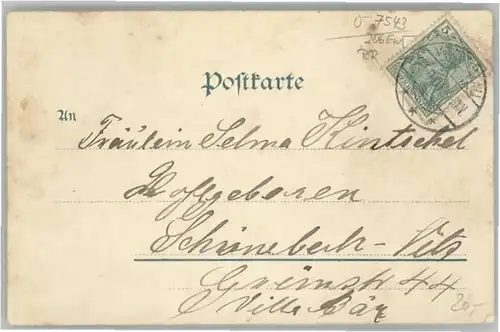 O-7543
Postkarte
An
Fräulein Selma Kintschel
Hofgeboren
Schönebeck-
Grünstr 44
Villa Bär
20,-